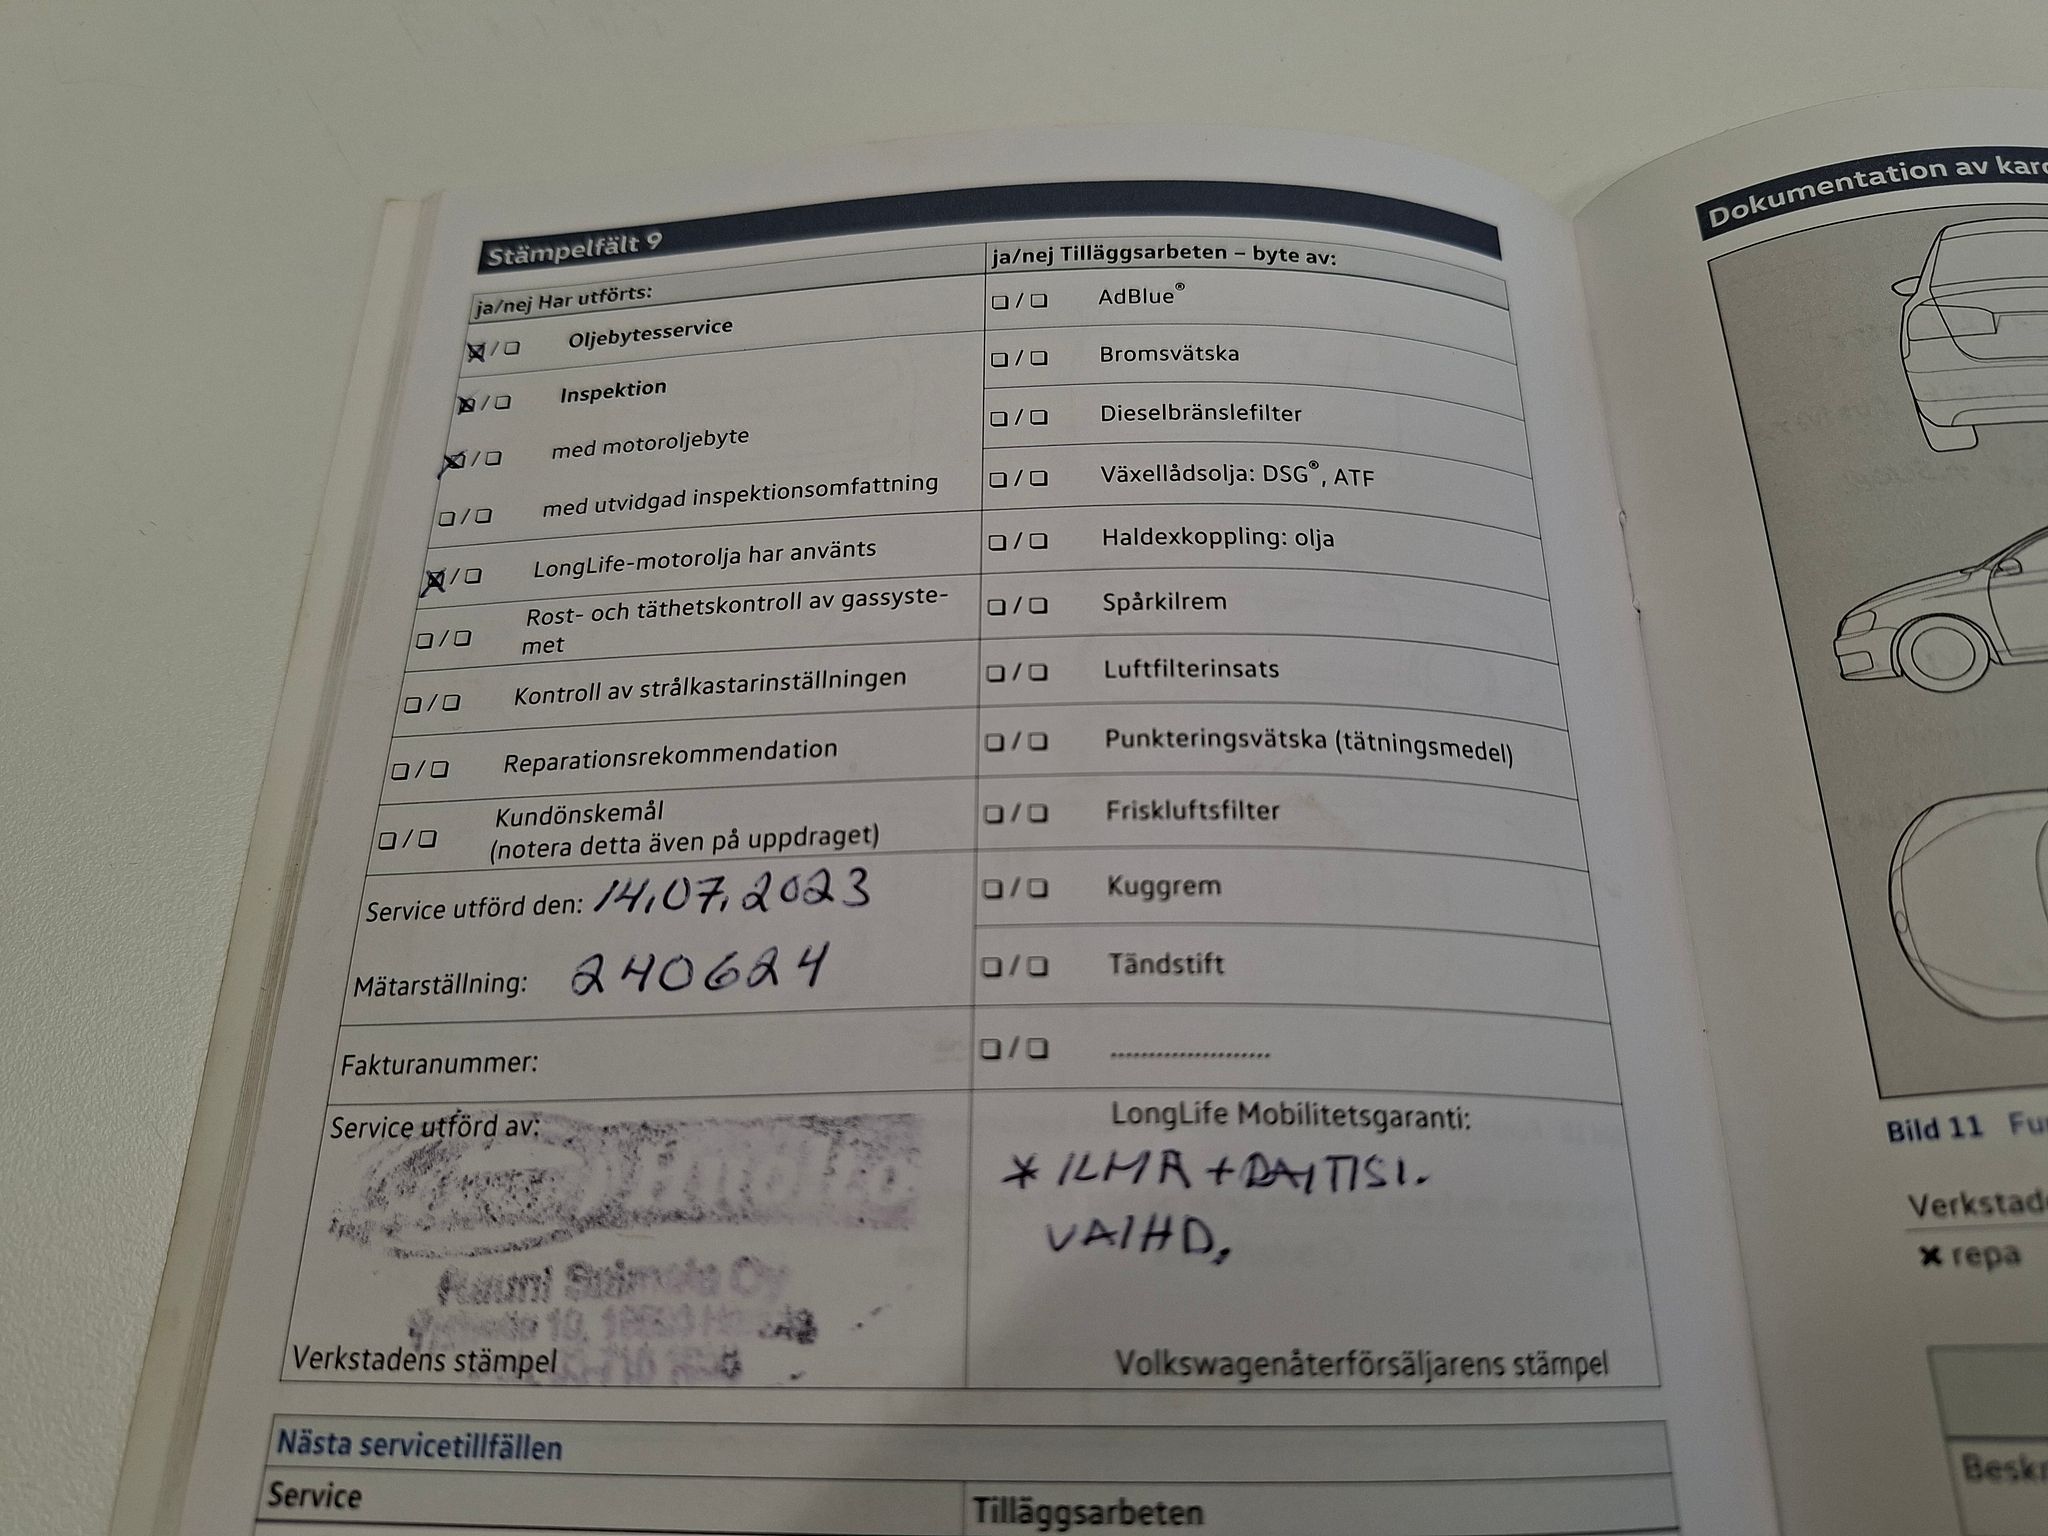 Stämpelfält 9
ja/nej Har utförts:
Oljebytesservice
Inspektion
med motoroljebyte
med utvidgad inspektionsomfattning
LongLife-motorolja har använts
Rost- och täthetskontroll av gassyste-
met
Kontroll av strålkastarinställningen
Reparationsrekommendation
Kundönskemål
(notera detta även på uppdraget)
Service utförd den: 14.07.2023
Mätarställning: 240624
Fakturanummer:
Service utförd av:
Verkstadens stämpel
ja/nej Tilläggsarbeten – byte av:
AdBlue®
Bromsvätska
Dieselbränslefilter
Växellådsolja: DSG®, ATF
Haldexkoppling: olja
Spårkilrem
Luftfilterinsats
Punkteringsvätska (tätningsmedel)
Friskluftsfilter
Kuggrem
Tändstift
......................
LongLife Mobilitetsgaranti:
* ILMA + RAITISI.
VAIHD.
Volkswagenåterförsäljarens stämpel
Nästa servicetillfällen
Service
Tilläggsarbeten
Dokumentation av
Bild 11
x repa